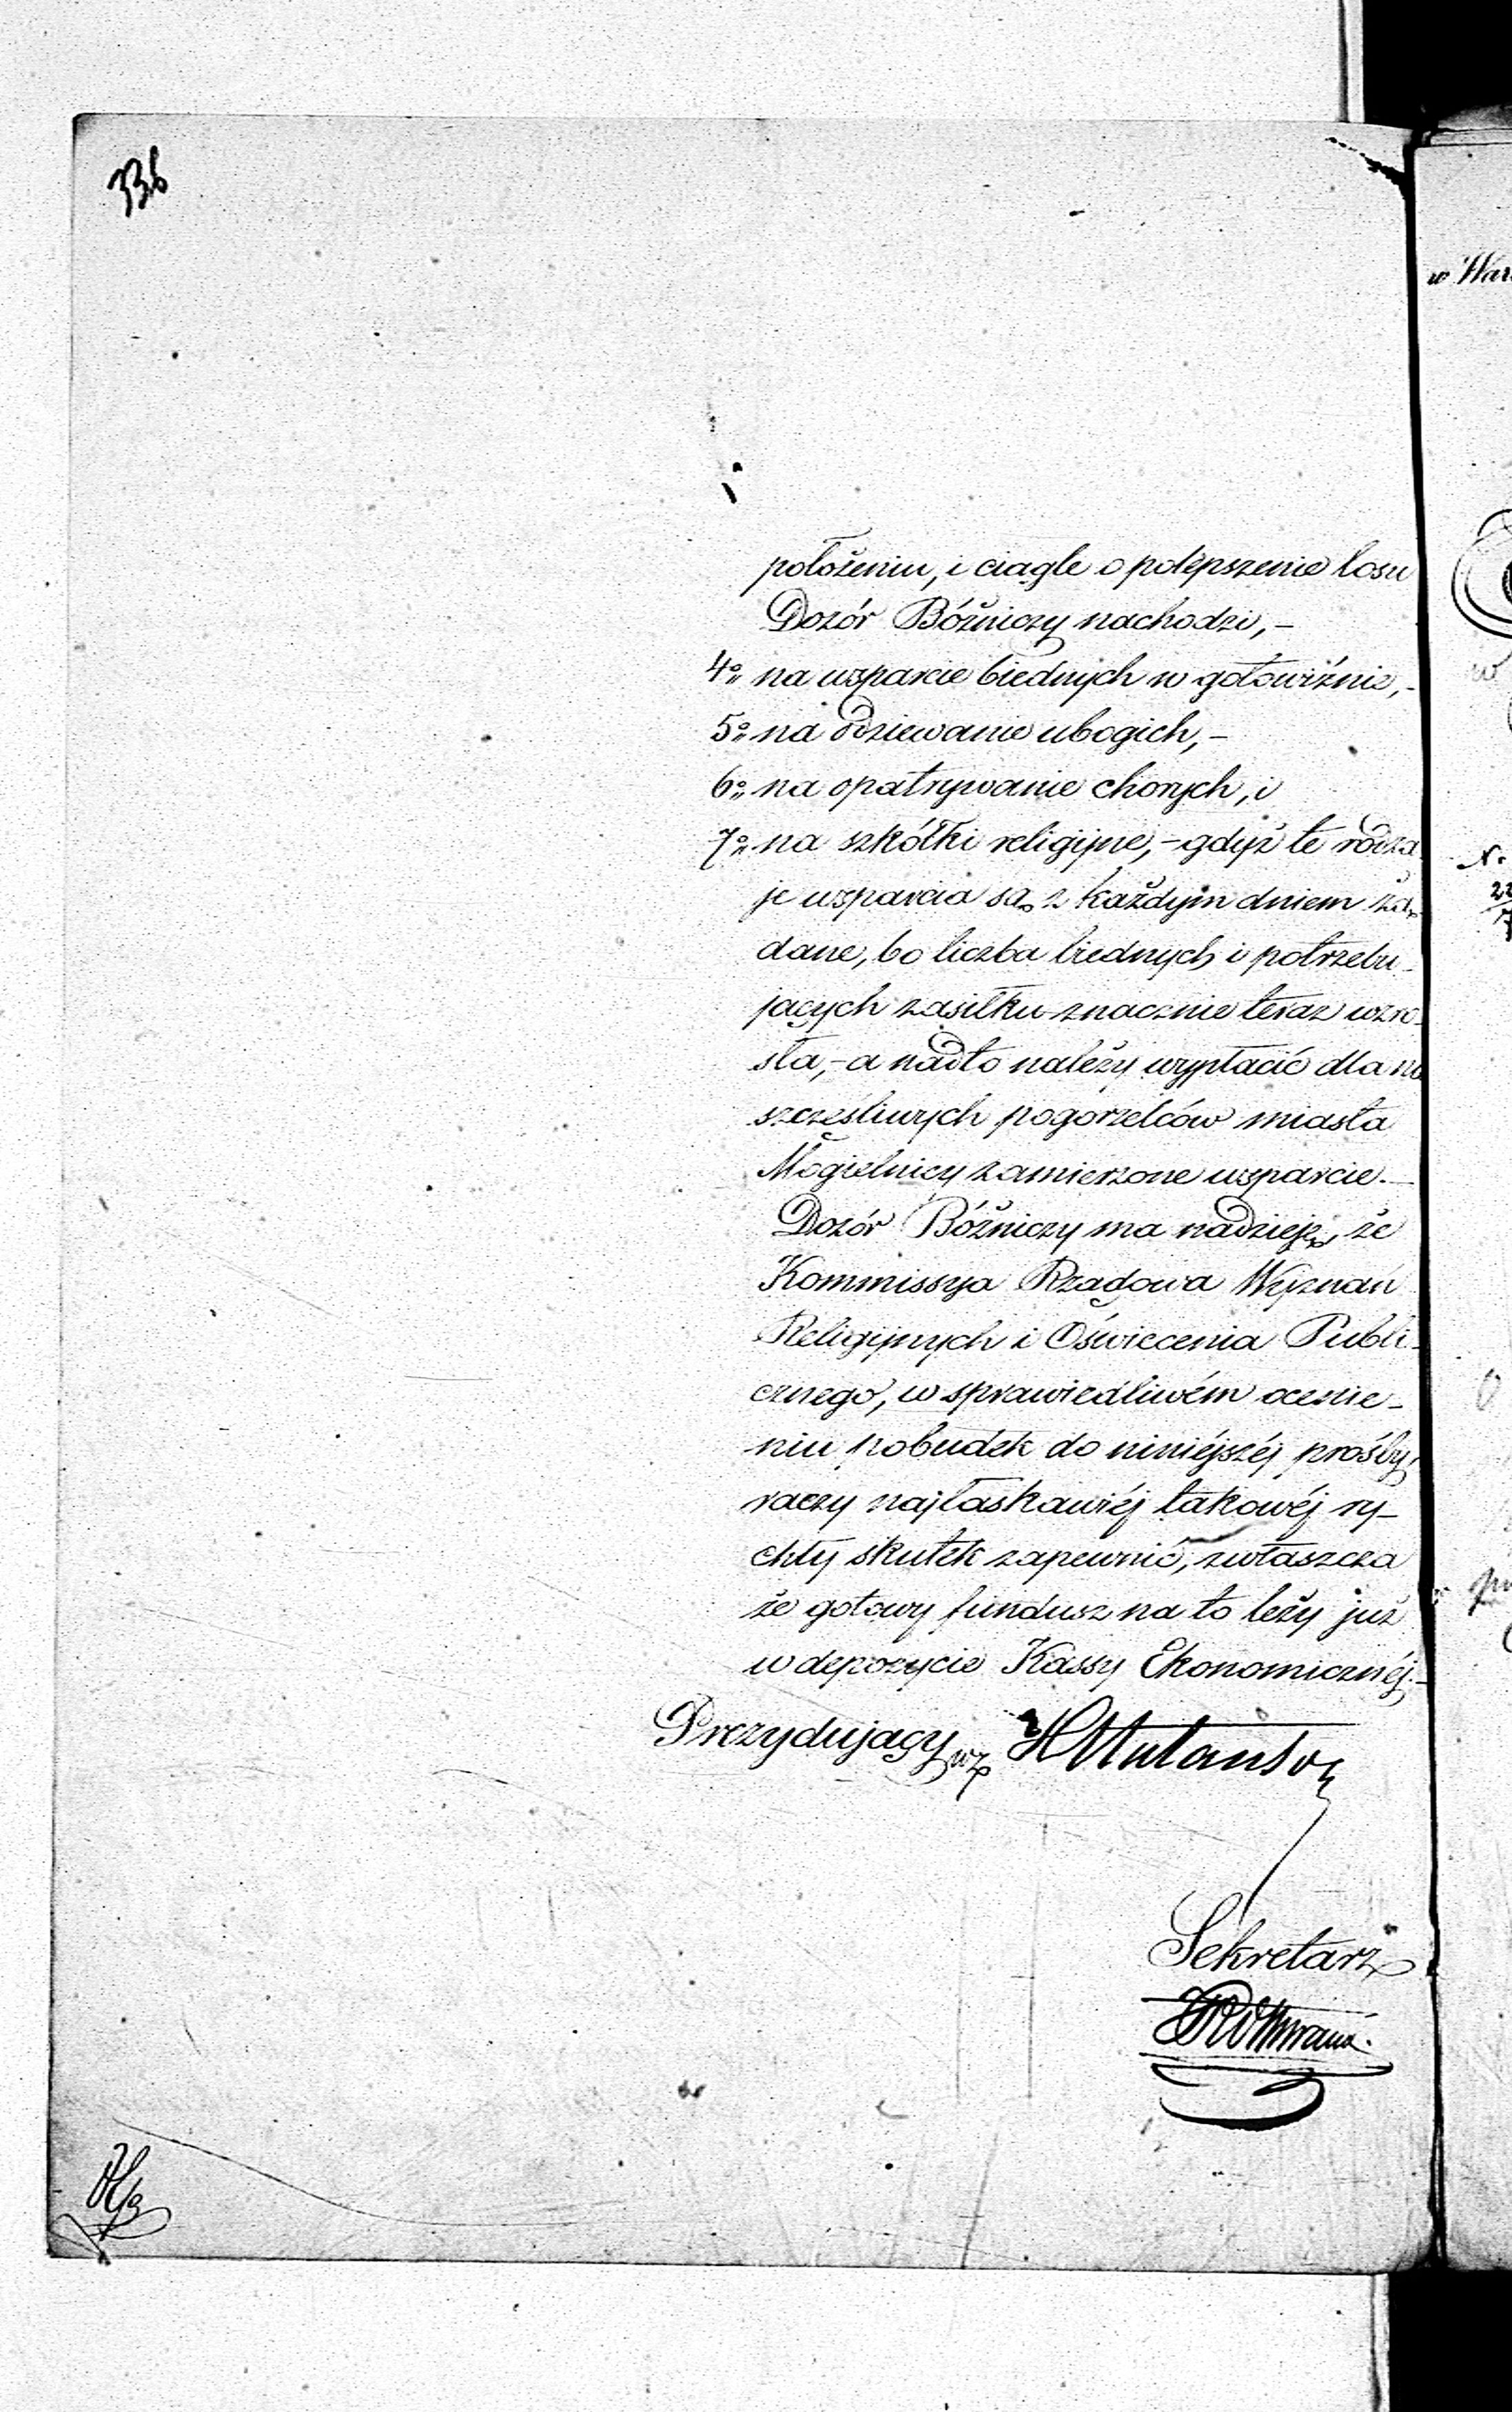 336
położeniu, i ciągle o polepszenie losu
Dozór Bóżniczy nachodzi, –
4º na wsparcie biednych w gotowiźnie, –
5º na odziewanie ubogich, –
6º na opatrywanie chorych, i
7º na szkółki religijne, – gdyż te rodza
je wsparcia są z każdym dniem żą
dane, bo liczba biednych i potrzebu-
jących zasiłku znacznie teraz wzro-
sła, – a nadto należy wypłacić dla nie
szczęśliwych pogorzelców miasta
Mogielnicy zamierzone wsparcie. –
Dozór Bóżniczy ma nadzieję, że
Kommissya Rządowa Wyznań
Religijnych i Oświecenia Publi-
cznego, w sprawiedliwém ocenie-
niu pobudek do niniéjszéj prośby,
raczy najłaskawiéj takowéj ry-
chły skutek zapewnić, zwłaszcza
że gotowy fundusz na to leży już
w depozycie Kassy Ekonomicznéj. –
Prezydujący wz
Sekretarz
w War
N.